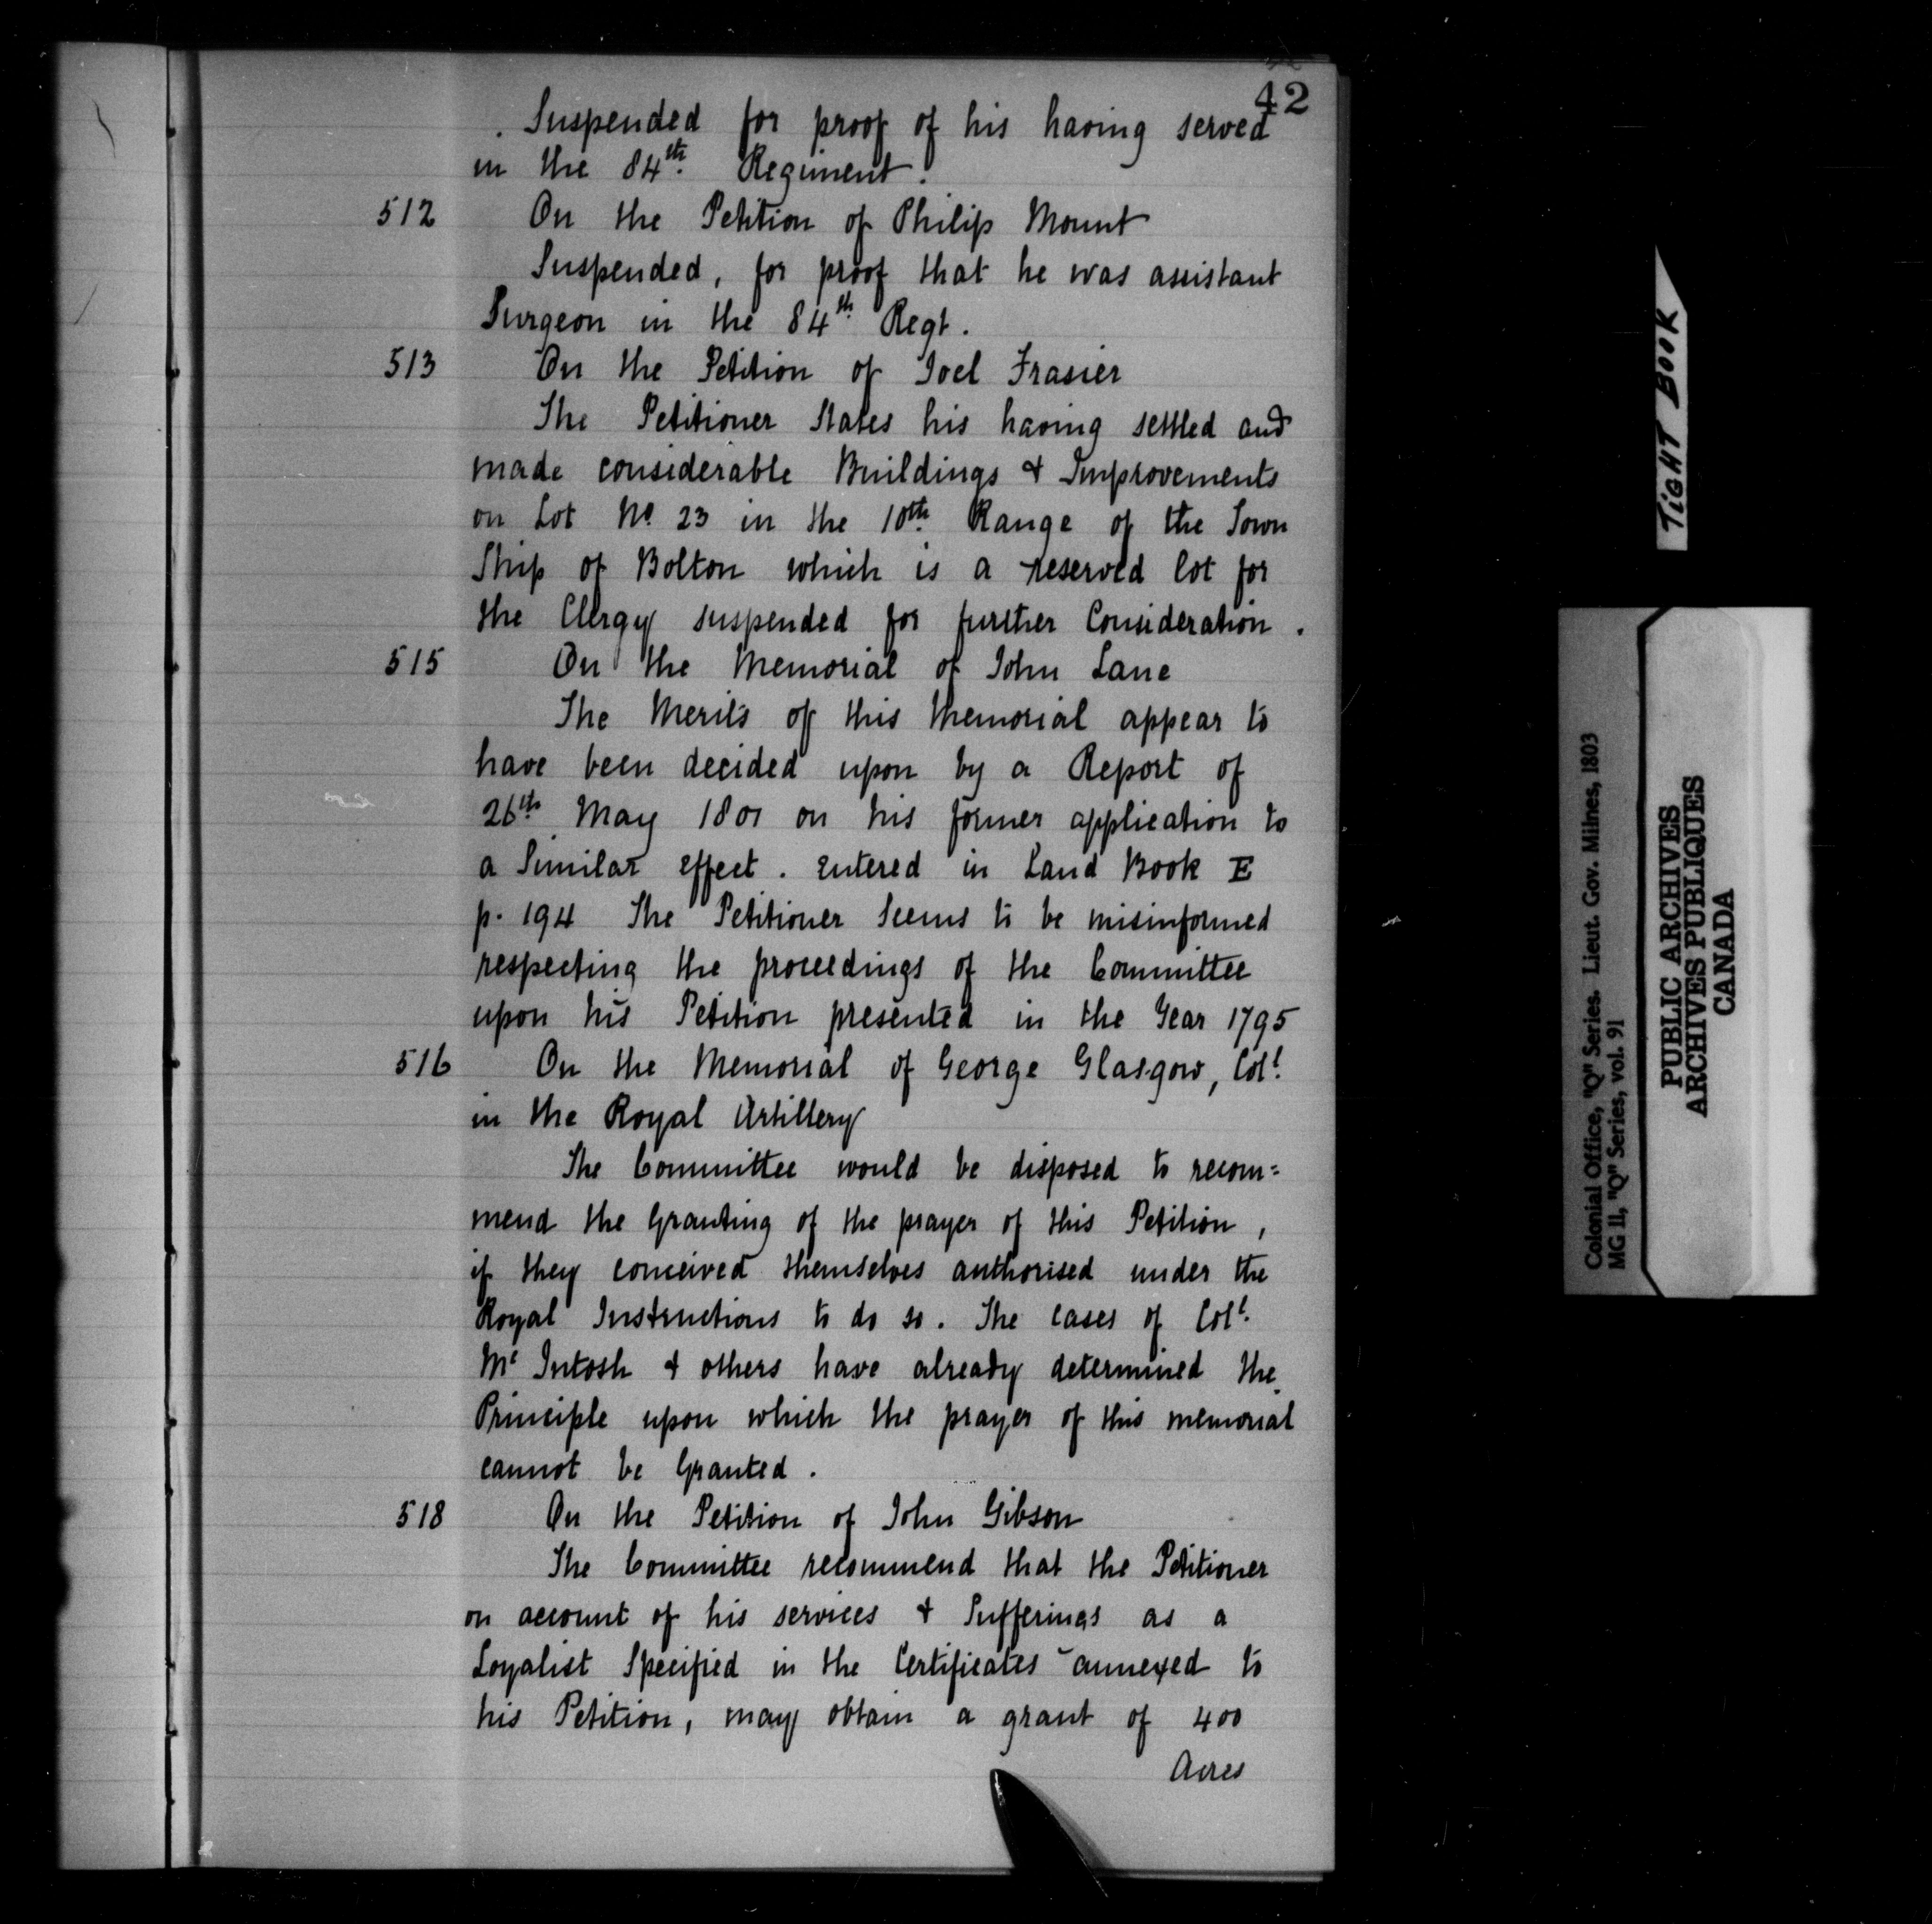 42
Suspended for proof of his having served
in the 84th. Regiment.
512 On the Petition of Philip Mount
Suspended, for proof that he was assistant
Surgeon in the 84th Regt.
513 On the Petition of Joel Frasier
The Petitioner States his having settled and
made considerable Buildings & Improvements
on Lot No. 23 in the 10th. Range of the Town
Ship of Bolton which is a reserved lot for
the Clergy suspended for further Consideration.
515 On the Memorial of John Lane
The Merits of this Memorial appear to
have been decided upon by a Report of
26th. May 1801 on his former application to
a Similar effect. Entered in Land Book E
p. 194 The Petitioner Seems to be misinformed
respecting the proceedings of the Committee
upon his Petition presented in the Year 1795
516 On the Memorial of George Glasgow, Col!
in the Royal Artillery
The Committee would be disposed to recom=
mend the Granting of the prayer of this Petition,
if they conceived themselves authorised under the
Royal Instructions to do so. The cases of Coll.
Mc Intosh & others have already determined the
Principle upon which the prayer of this memorial
cannot be Granted.
518 On the Petition of John Gibson
The Committee recommend that the Petitioner
on account of his services & Sufferings as a
Loyalist Specified in the Certificates annexed to
his Petition, may obtain a grant of 400
Acres
TIGHT BOOK
Colonial Office, "Q" Series. Lieut. Gov. Milnes, 1803
MG 11, "Q" Series, vol. 91
PUBLIC ARCHIVES
ARCHIVES PUBLIQUES
CANADA